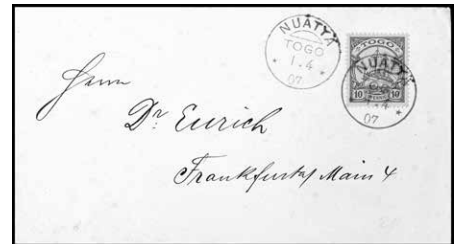 NUATYÄ
TOGO
1.4
* 07 *
TOGO
NUATYÄ
10 10
1.4
07 *
Herrn
Dr. Eurich
Frankfurt a/ Main 4